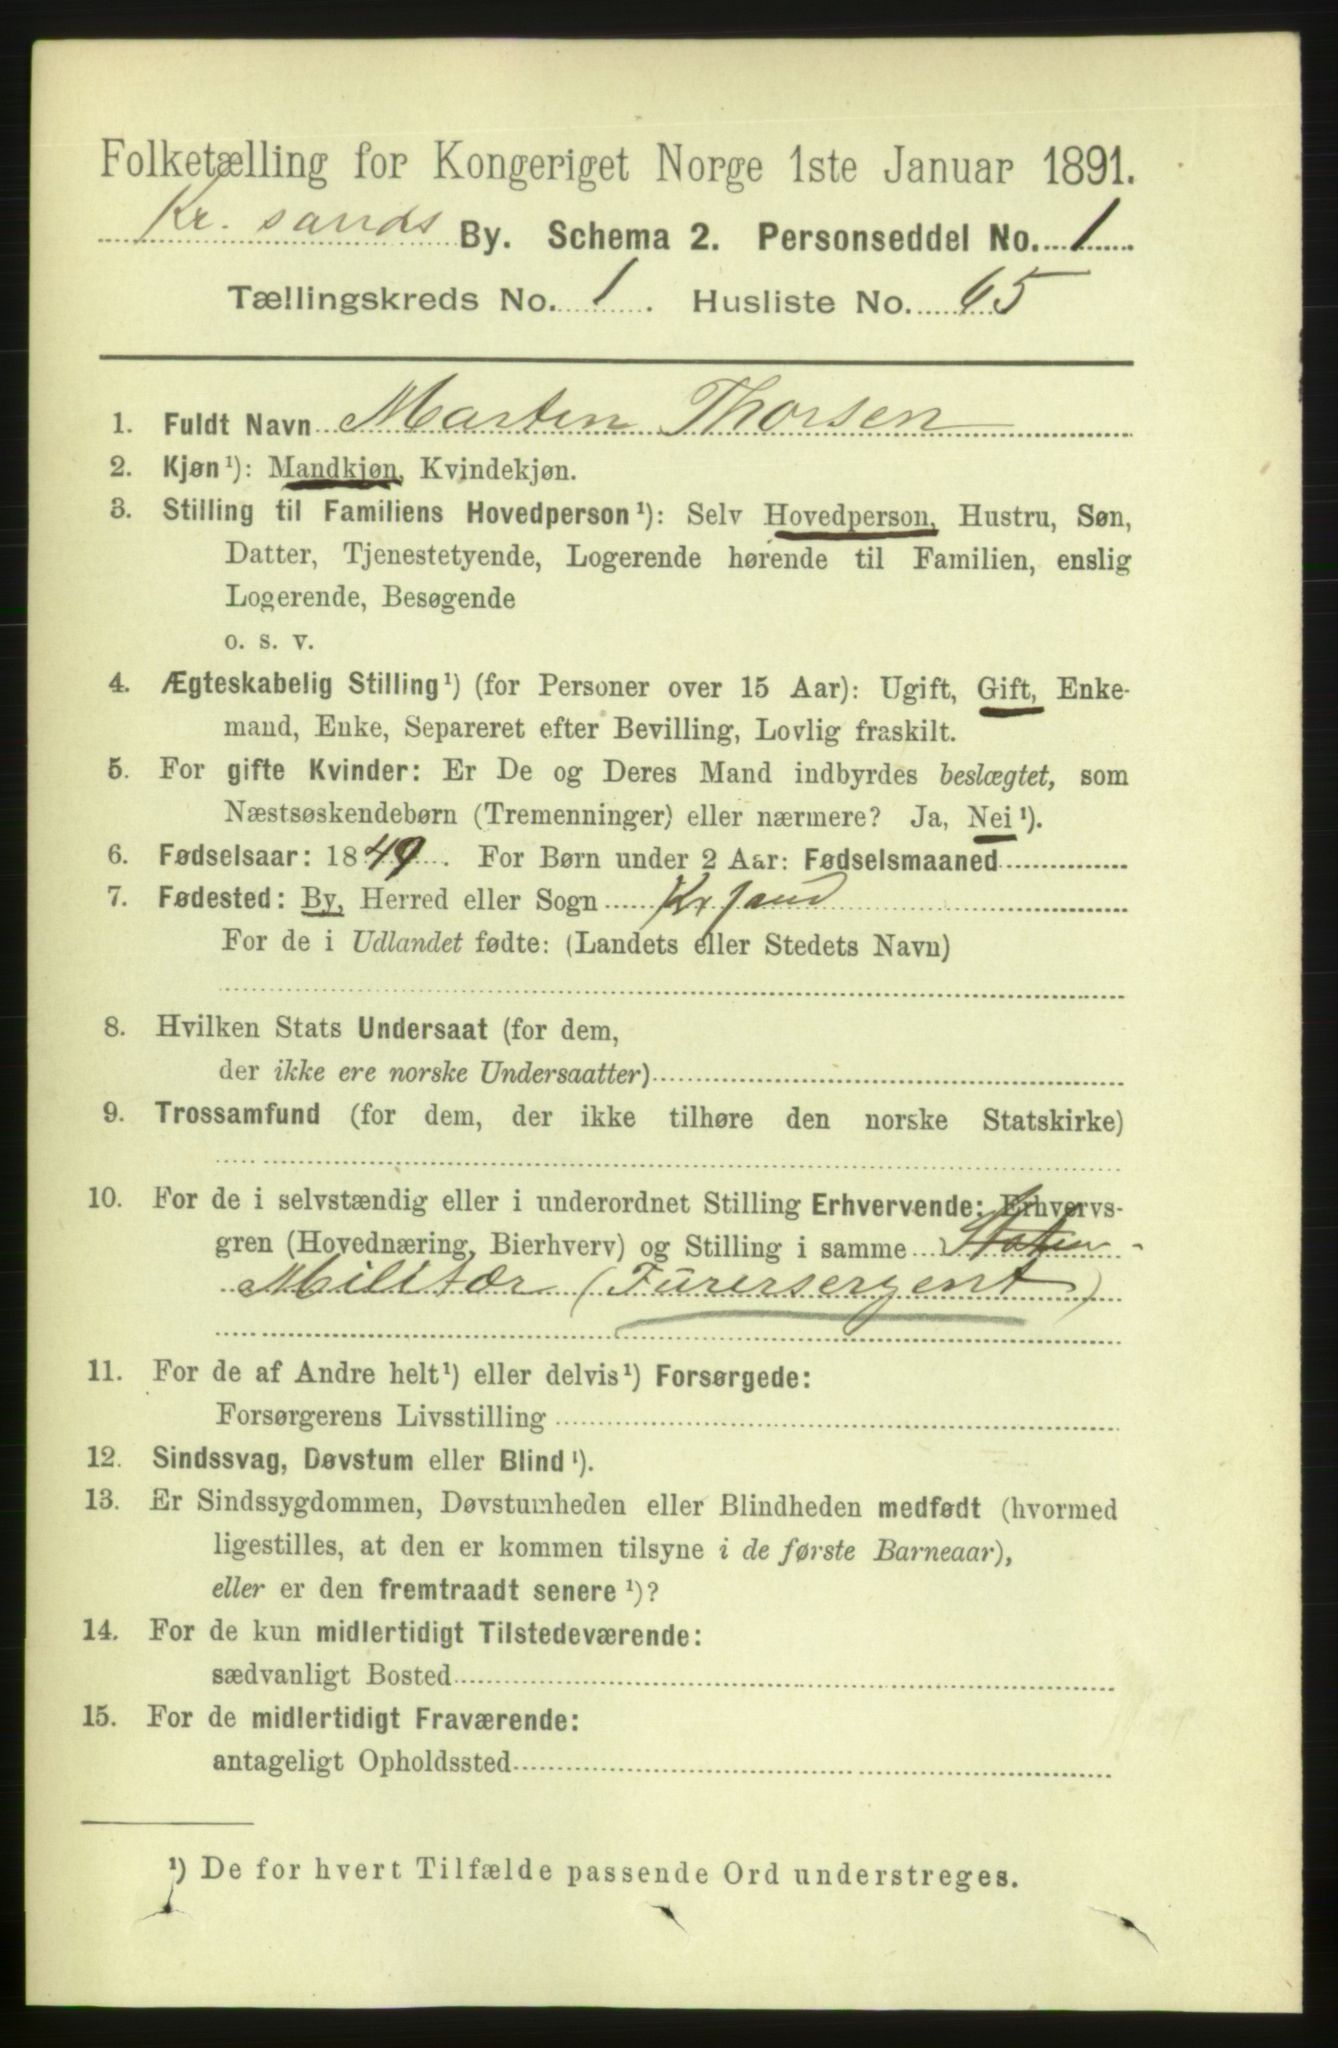 Folketælling for Kongeriget Norge 1ste Januar 1891.
Kr. sands By. Schema 2. Personseddel No. 1
Tællingskreds No. 1. Husliste No. 65
1. Fuldt Navn Martin Thorsen
2. Kjøn¹): Mandkjøn, Kvindekjøn.
3. Stilling til Familiens Hovedperson¹): Selv Hovedperson, Hustru, Søn,
Datter, Tjenestetyende, Logerende hørende til Familien, enslig
Logerende, Besøgende
o. s. v.
4. Ægteskabelig Stilling¹) (for Personer over 15 Aar): Ugift, Gift, Enke-
mand, Enke, Separeret efter Bevilling, Lovlig fraskilt.
5. For gifte Kvinder: Er De og Deres Mand indbyrdes beslægtet, som
Næstsøskendebørn (Tremenninger) eller nærmere? Ja, Nei¹).
6. Fødselsaar: 1849. For Børn under 2 Aar: Fødselsmaaned
7. Fødested: By, Herred eller Sogn Kr sand
For de i Udlandet fødte: (Landets eller Stedets Navn)
8. Hvilken Stats Undersaat (for dem,
der ikke ere norske Undersaatter)
9. Trossamfund (for dem, der ikke tilhøre den norske Statskirke)
10. For de i selvstændig eller i underordnet Stilling Erhvervende: Erhvervs-
gren (Hovednæring, Bierhverv) og Stilling i samme
Militær (Furersergent)
11. For de af Andre helt¹) eller delvis¹) Forsørgede:
Forsørgerens Livsstilling
12. Sindssvag, Døvstum eller Blind¹).
13. Er Sindssygdommen, Døvstumheden eller Blindheden medfødt (hvormed
ligestilles, at den er kommen tilsyne i de første Barneaar),
eller er den fremtraadt senere¹)?
14. For de kun midlertidigt Tilstedeværende:
sædvanligt Bosted
15. For de midlertidigt Fraværende:
antageligt Opholdssted
¹) De for hvert Tilfælde passende Ord understreges.